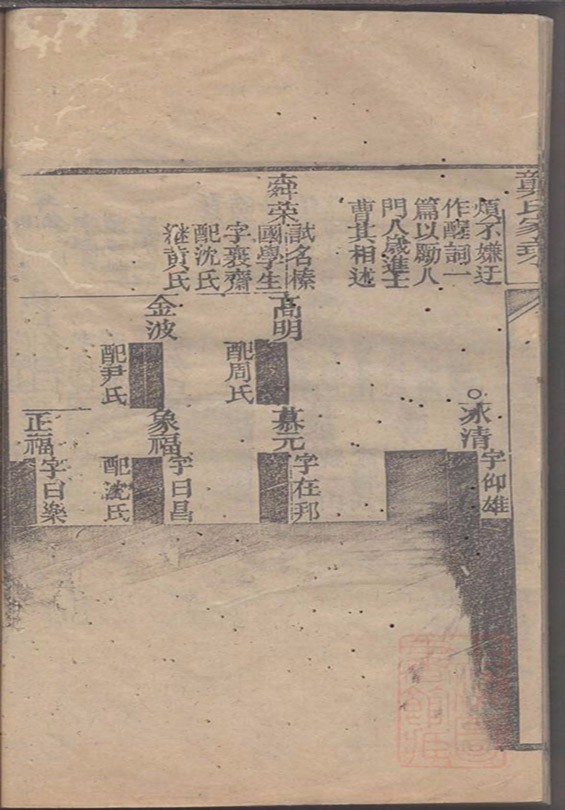 龔氏家
煩不嫌迂
作醒詞一
篇以勵人
門人歲進士
曹其相述
舜荣
試名榛
國學生
字裴齋
配沈氏
継黄氏
高明
配周氏
金波
配尹氏
永清
字仰雄
慕元
字在邦
象福
字曰昌
配沈氏
正福
字曰樂